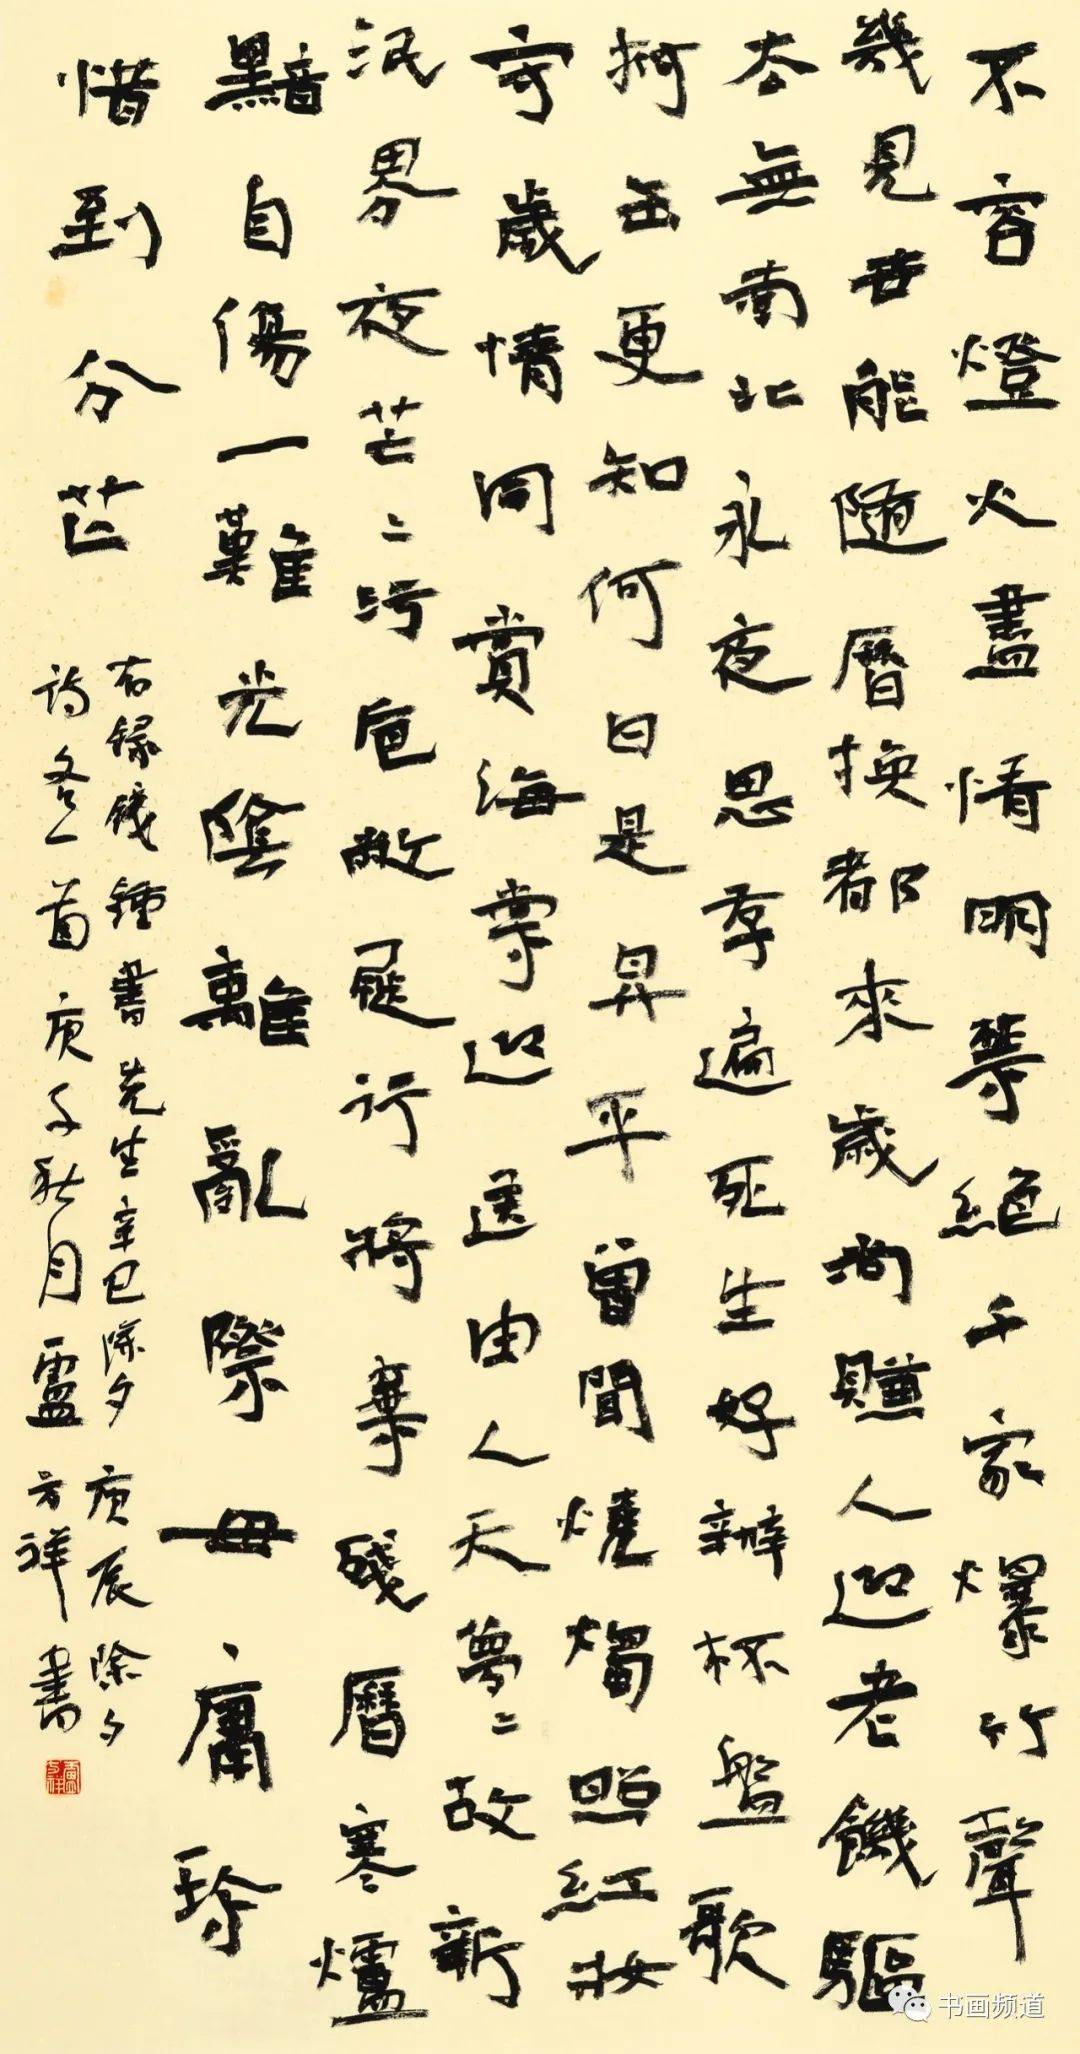 不容燈火盡情明禁絕千家爆竹聲
幾見世能隨曆換都來歲尚賺人迎老饑驅
去無南北永夜思存遍死生好辦杯盤歌
拊缶更知何日是昇平曾聞燒燭照紅妝
守歲情同賞海棠迎送由人天夢〻故新
泯界夜芒〻污卮敝屣行將棄殘曆寒爐
黯自傷一難光陰離亂際毋庸珍
惜到分芒
右錄錢鍾書先生辛巳除夕庚辰除夕
詩各一首庚子秋月盧方祥書
书画频道